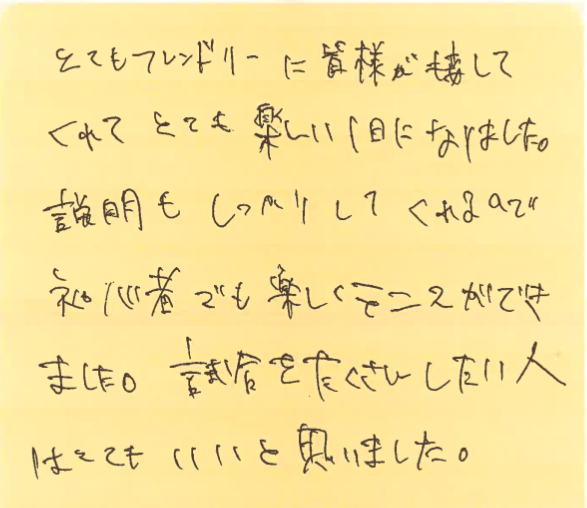 とてもフレンドリーに皆様が接して
くれてとても楽しい1日になりました。
説明もしっかりしてくれるので
初心者でも楽しくテニスができ
ました。試合をたくさんしたい人
はとてもいいと思いました。